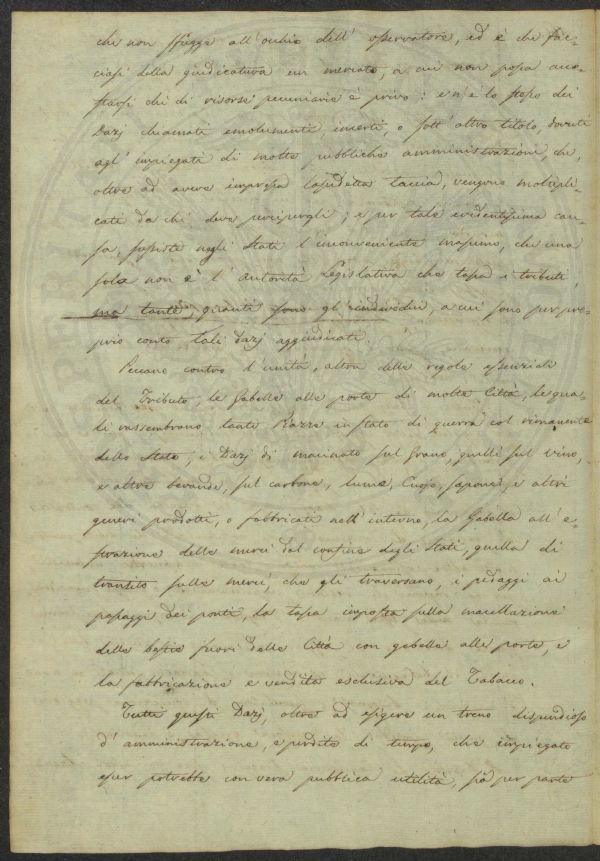 che non sfugge all'occhio dell'osservatore, ed è che fac-
ciasi della giudicatura un mercato, a cui non possa acco-
starsi chi di risorse pecuniarie è privo: e n'è lo stesso dei
Dazj chiamati emolumenti, incerti, o sott'altro titolo, dovuti
agl'impiegati di molte pubbliche amministrazioni, che,
oltre ad avere impressa la suddetta taccia, vengono moltipli-
cati da chi deve percepirgli; e per tale evidentissima cau-
sa, sussiste negli Stati l'inconveniente massimo, che una
sola non è l'autorità Legislativa che tassa i tributi,
ma tante, quanti sono gl'individui, a cui sono per pro-
prio conto tali dazj aggiudicati.
Peccano contro l'unità, altra delle regole essenziali
del Tributo, le Gabelle alle porte di molte Città, le qua-
li rassembrano tante Piazze in stato di guerra col rimanente
dello Stato, i Dazj di macinato sul grano, quelli sul vino,
e altre bevande, sul carbone, lume, Cuojo, saponi, e altri
generi prodotti, o fabbricati nell'interno, la Gabella all'e-
strazione delle merci dal confine degli Stati, quella di
transito sulle merci, che gli traversano, i pedaggi ai
passaggi dei ponti, la tassa imposta sulla macellazione
delle bestie fuori delle Città con gabelle alle porte, e
la fabbricazione e vendita esclusiva del Tabacco.
Tutti questi Dazj, oltre ad esigere un treno dispendioso
d'amministrazione, e perdita di tempo, che impiegato
esser potrebbe con vera pubblica utilità, fa per parte